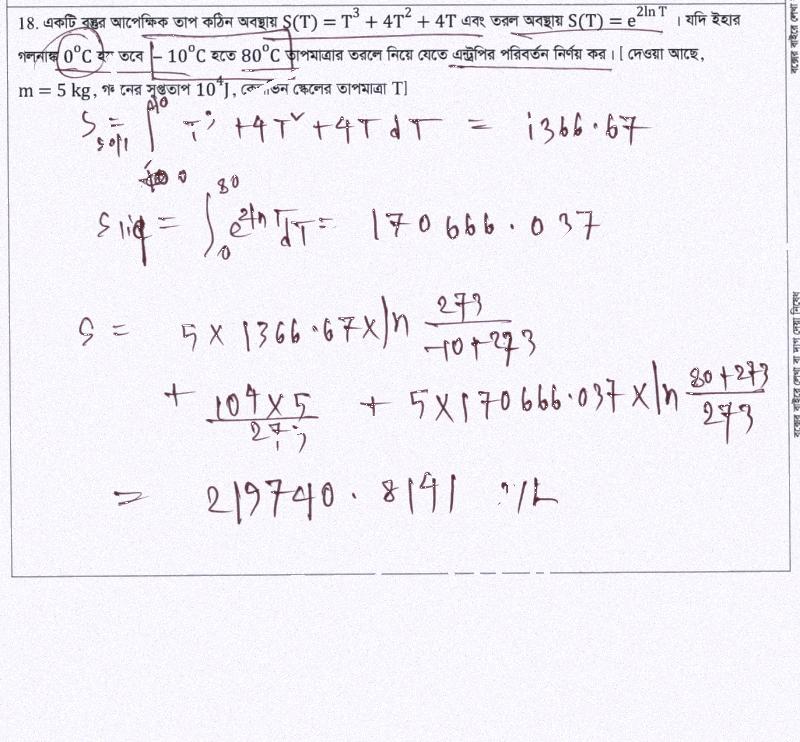 18. একটি বস্তুর আপেক্ষিক তাপ কঠিন অবস্থায় S(T) = T³ + 4T² + 4T এবং তরল অবস্থায় S(T) = e^{2ln T} । যদি ইহার
গলনাঙ্ক 0°C হয় তবে – 10°C হতে 80°C তাপমাত্রার তরলে নিয়ে যেতে এন্ট্রপির পরিবর্তন নির্ণয় কর । [ দেওয়া আছে,
m = 5 kg, নের সুপ্ততাপ 10⁴J, স্কেলের তাপমাত্রা T]
S = ∫ T³ + 4T² + 4T dT = 1366.67
S liq = ∫₀⁸⁰ e^{2ln T} dT = 170666.037
S = 5 × 1366.67 × ln 273/(-10+273)
+ (10⁴ × 5)/273 + 5 × 170666.037 × ln (80+273)/273
= 219740.8141
বক্সের বাইরে লেখা বা দাগ দেয়া নিষেধ